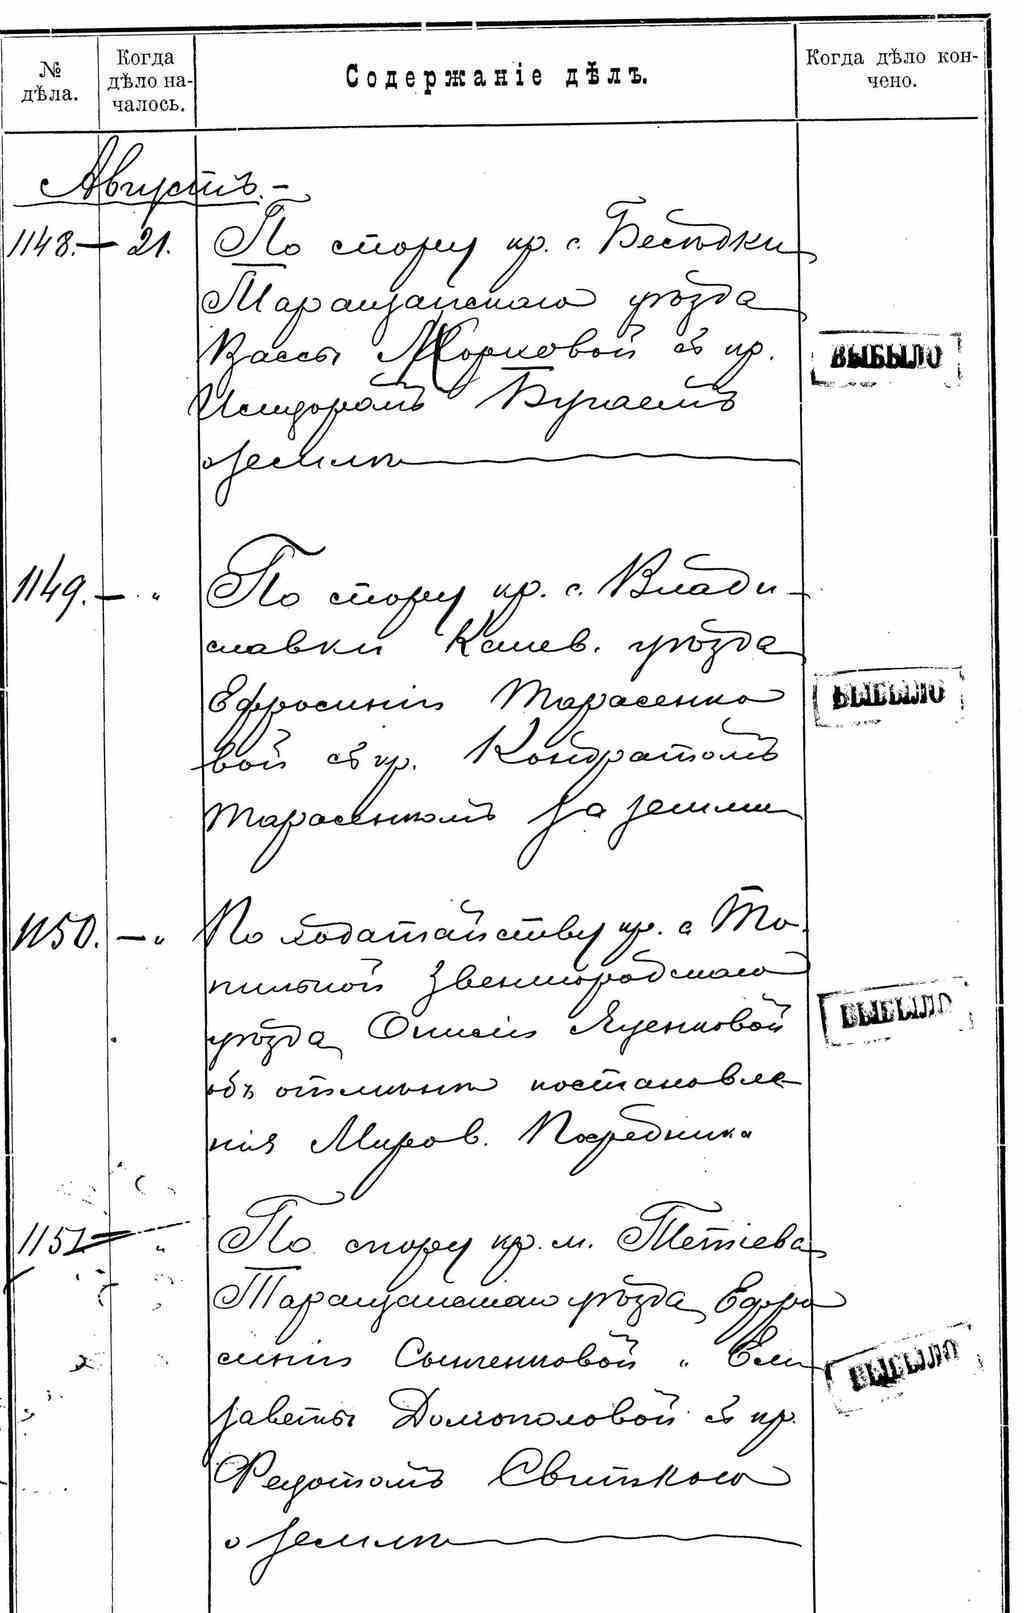 № дѣла.
Когда дѣло на-
чалось.
Содержаніе дѣлъ.
Когда дѣло кон-
чено.
Августъ.-
1148.— 21. По спору кр. с. Бесѣдки
Таращанскаго уѣзда
Вассы Жорковой съ кр.
Исидоромъ Бугаемъ
о землѣ
ВЫБЫЛО
1149.— „ По спору кр. с. Влади-
славки Канев. уѣзда
Ефросиніи Тарасенко
вой съ кр. Кондратомъ
Тарасенкомъ за землю
ВЫБЫЛО
1150.— „ По ходатайству кр. с То-
пильной Звенигородскаго
уѣзда Онисіи Яценковой
объ отмѣнѣ постановле-
нія Миров. Посредника
ВЫБЫЛО
1151— „ По спору кр. м. Тетіева
Таращанскаго уѣзда Ефро
синіи и Ели
заветы Долгополовой съ кр.
Федотомъ
о землѣ
ВЫБЫЛО